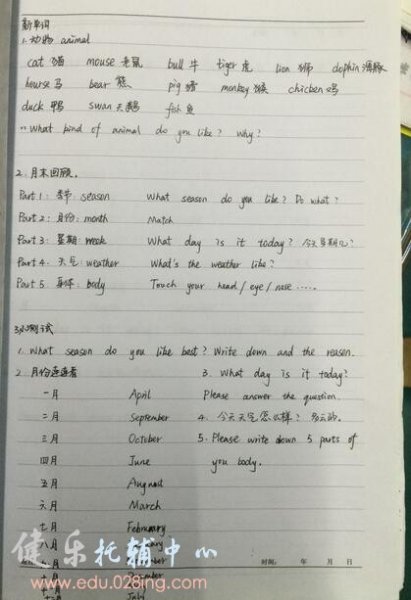 新单词
1. 动物 animal
cat 猫 mouse 老鼠 bull 牛 tiger 虎 lion 狮 dophin 海豚
hourse 马 bear 熊 pig 猪 monkey 猴 chicben 鸡
duck 鸭 swan 天鹅 fish 鱼
What kind of animal do you like? Why?
2. 月末回顾.
Part 1: 季节 season What season do you like? Do what?
Part 2: 月份: month Match
Part 3: 星期: week What day is it today? 今天星期几?
Part 4. 天气: weather What's the weather like?
Part 5 身体: body Touch your head / eye / nose ......
3. 测试
1. What season do you like best? Write down and the reason.
2. 月份连连看 3. What day is it today?
一月 April Please answer the question.
二月 September 4. 今天天气怎么样? 多云的.
三月 October 5. Please write down 5 parts of
四月 June you body.
五月 August
六月 March
七月 February
八月
健乐托辅中心
时间: 年 月 日
www.edu.028ing.com
July